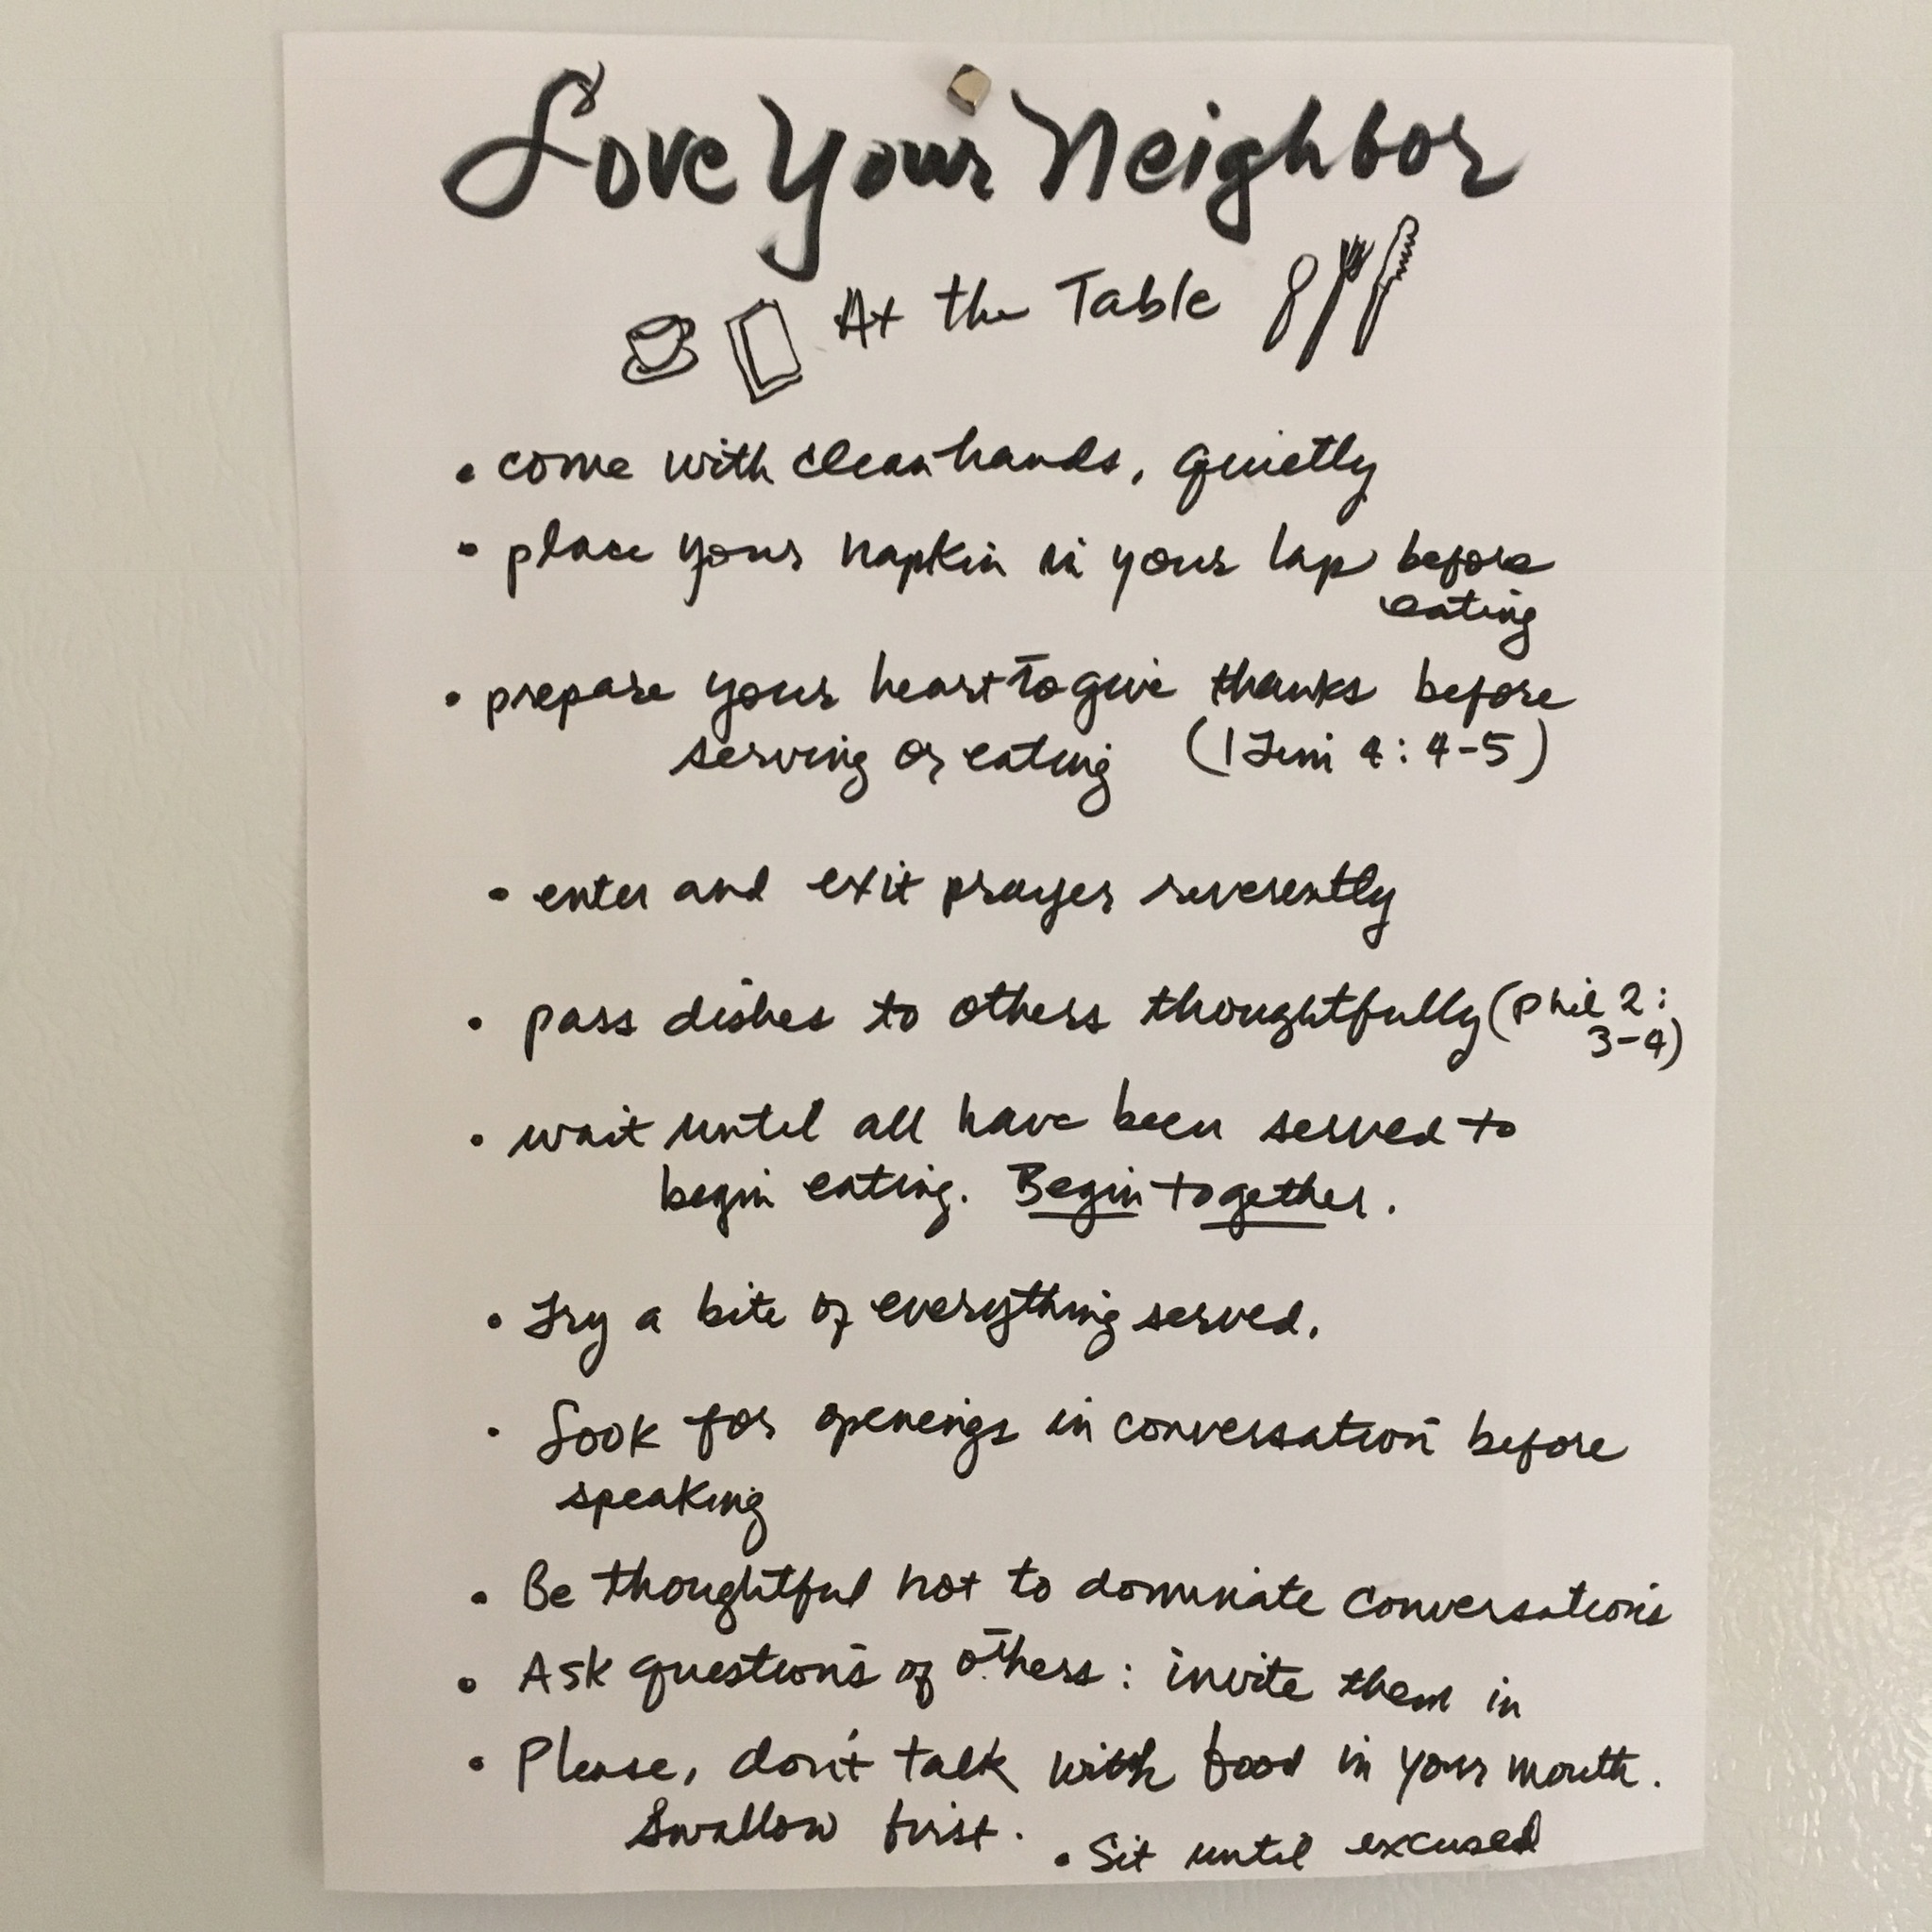 Love Your Neighbor
At the Table
• come with clean hands, quietly
• place your napkin in your lap before
eating
• prepare your heart to give thanks before
serving or eating (1 Tim 4:4-5)
• enter and exit prayer reverently
• pass dishes to others thoughtfully (Phil 2:
3-4)
• wait until all have been served to
begin eating. Begin together.
• Try a bite of everything served.
• Look for openings in conversation before
speaking
• Be thoughtful not to dominate conversations
• Ask questions of others: invite them in
• Please, don't talk with food in your mouth.
Swallow first.
• Sit until excused